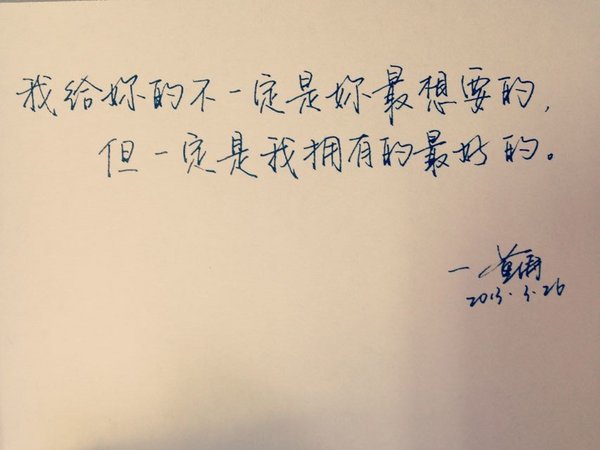 我给妳的不一定是妳最想要的，
但一定是我拥有的最好的。
一
2013.3.26